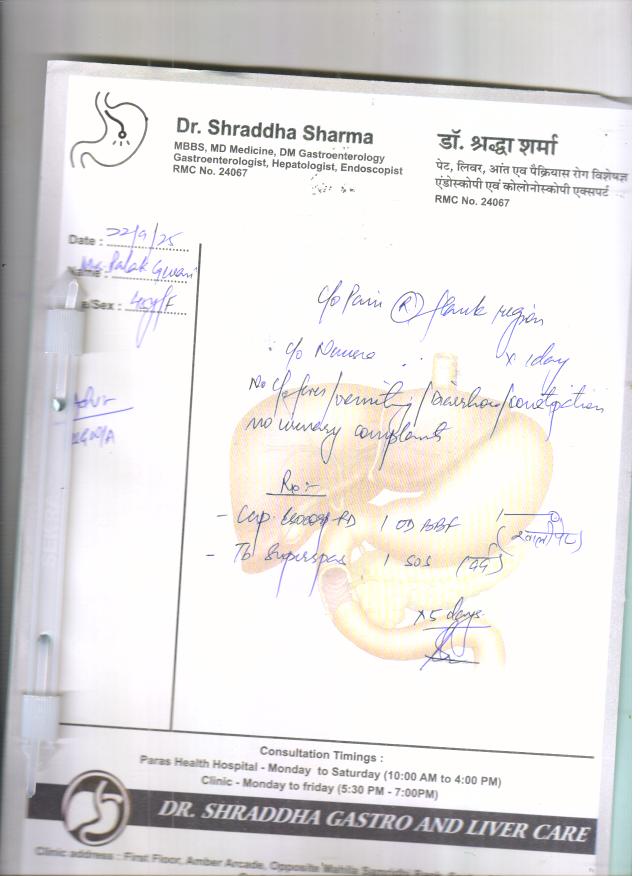 Dr. Shraddha Sharma
MBBS, MD Medicine, DM Gastroenterology
Gastroenterologist, Hepatologist, Endoscopist
RMC No. 24067
डॉ. श्रद्धा शर्मा
पेट, लिवर, आंत एव पैंक्रियास रोग विशेषज्ञ
एंडोस्कोपी एवं कोलोनोस्कोपी एक्सपर्ट
RMC No. 24067
Date : 22/9/25
Name : Palak
e/Sex :
Adv:-
USG W/A
c/o Pain (R) flank region
c/o Nausea x 1day
No c/o fever/vomiting/diarrhoea/constipation
no urinary complaints
Rx :-
- Cap. RD 1 OD BBF (खाली पेट)
- Tb Superspas 1 SOS (दर्द)
x 5 days
Consultation Timings :
Paras Health Hospital - Monday to Saturday (10:00 AM to 4:00 PM)
Clinic - Monday to friday (5:30 PM - 7:00PM)
DR. SHRADDHA GASTRO AND LIVER CARE
Clinic address : First Floor, Amber Arcade, Opposite